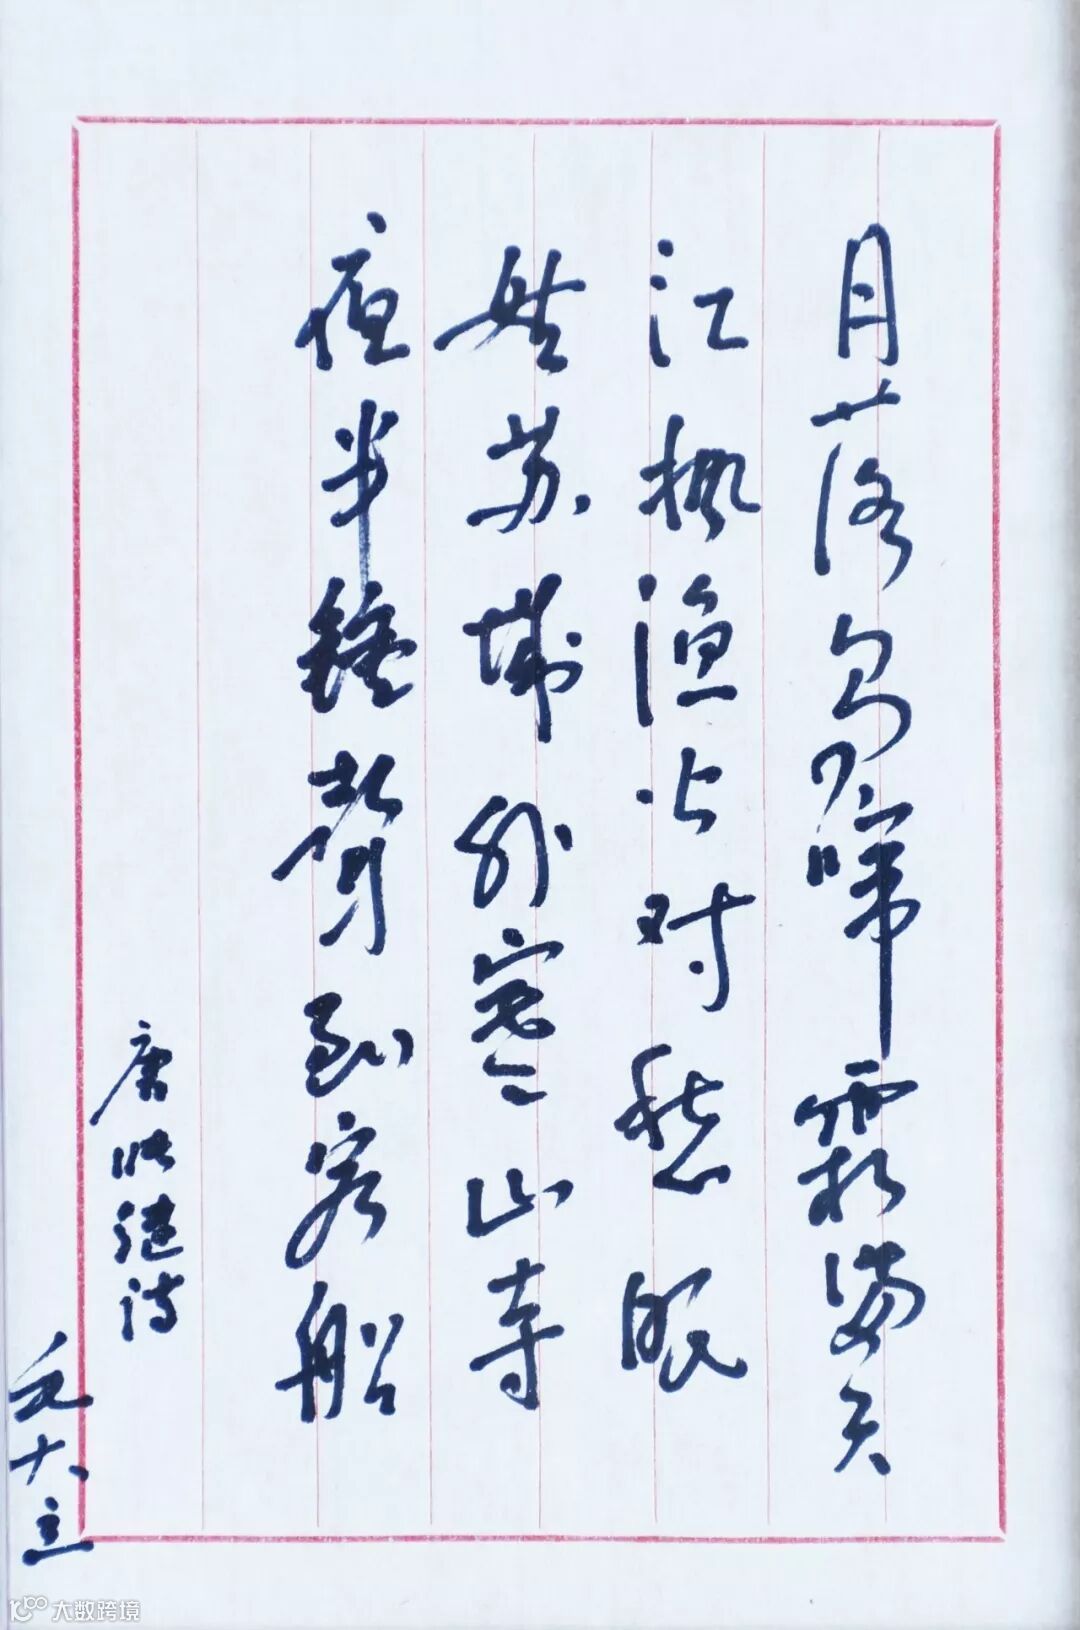 月落乌啼霜满天
江枫渔火对愁眠
姑苏城外寒山寺
夜半鐘聲到客船
唐张继诗
大数跨境